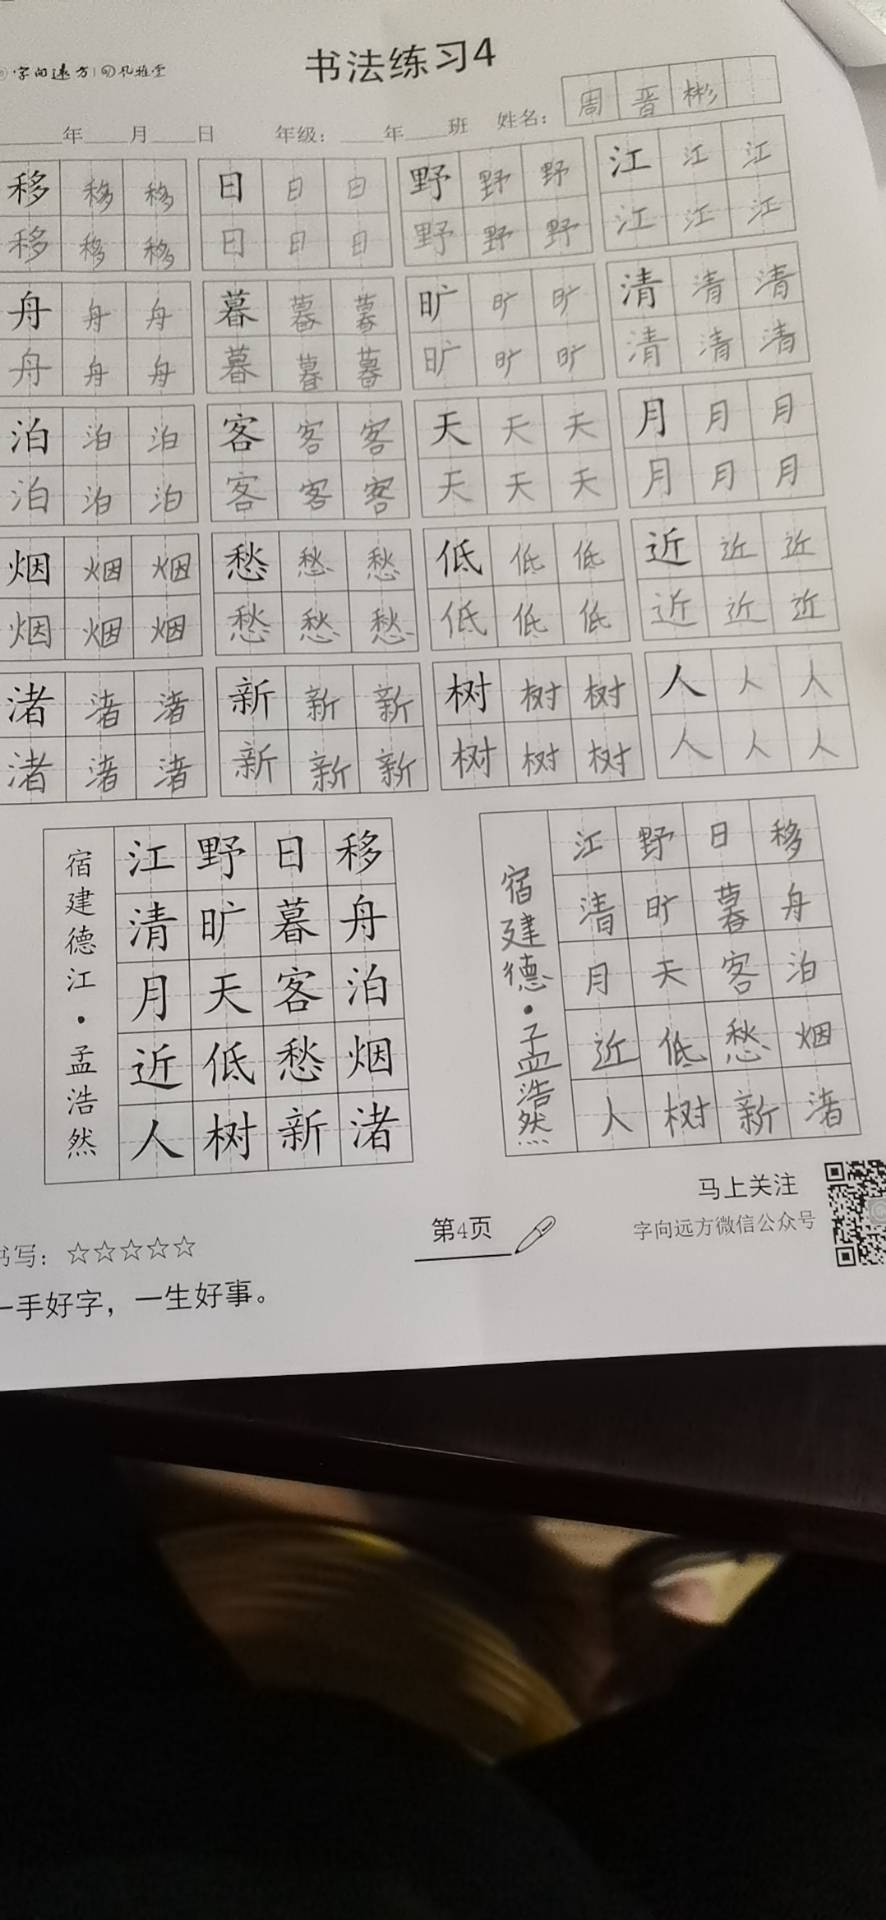 字向远方 | 孔雅堂
书法练习4
年 月 日 年级： 年 班 姓名： 周晋彬
移 移 移 日 日 日 野 野 野 江 江 江
移 移 移 日 日 日 野 野 野 江 江 江
舟 舟 舟 暮 暮 暮 旷 旷 旷 清 清 清
舟 舟 舟 暮 暮 暮 旷 旷 旷 清 清 清
泊 泊 泊 客 客 客 天 天 天 月 月 月
泊 泊 泊 客 客 客 天 天 天 月 月 月
烟 烟 烟 愁 愁 愁 低 低 低 近 近 近
烟 烟 烟 愁 愁 愁 低 低 低 近 近 近
渚 渚 渚 新 新 新 树 树 树 人 人 人
渚 渚 渚 新 新 新 树 树 树 人 人 人
移舟泊烟渚
日暮客愁新
野旷天低树
江清月近人
宿建德江·孟浩然
移舟泊烟渚
日暮客愁新
野旷天低树
江清月近人
宿建德·孟浩然
书写：☆☆☆☆☆
第4页
马上关注
字向远方微信公众号
一手好字，一生好事。